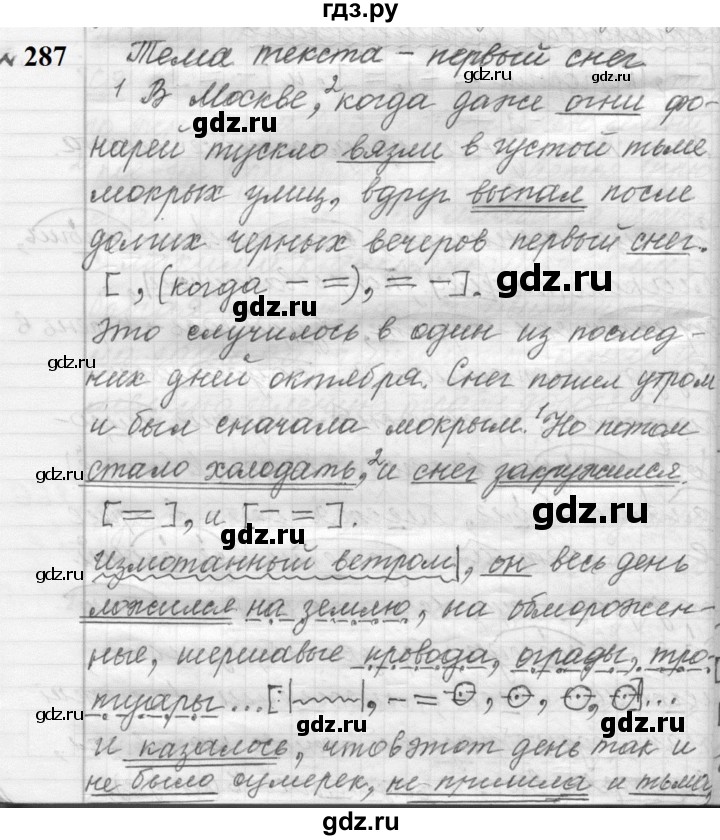 гдз.ру
№ 287 Тема текста – первый снег
1 В Москве, 2 когда даже огни фо-
gdz.ru gdz.ru
gdz.ru
нарей тускло вязли в густой тьме
gdz.ru gdz.ru
мокрых улиц, вдруг выпал после
долгих черных вечеров первый снег.
[ , (когда – =), = –]. gdz.ru
gdz.ru
Это случилось в один из послед-
gdz.ru
них дней октября. Снег пошел утром
и был сначала мокрым. 1 Но потом
стало холодать, 2 и снег закружился.
gdz.ru gdz.ru
[=], и [– =]. gdz.ru
gdz.ru
Измотанный ветром, он весь день
gdz.ru
ложился на землю, на обморожен-
ные, шершавые провода, ограды, тро-
gdz.ru gdz.ru
туары...
gdz.ru
gdz.ru gdz.ru
И казалось, что в этот день так и
не было сумерек, не пришла и тьма,
gdz.ru